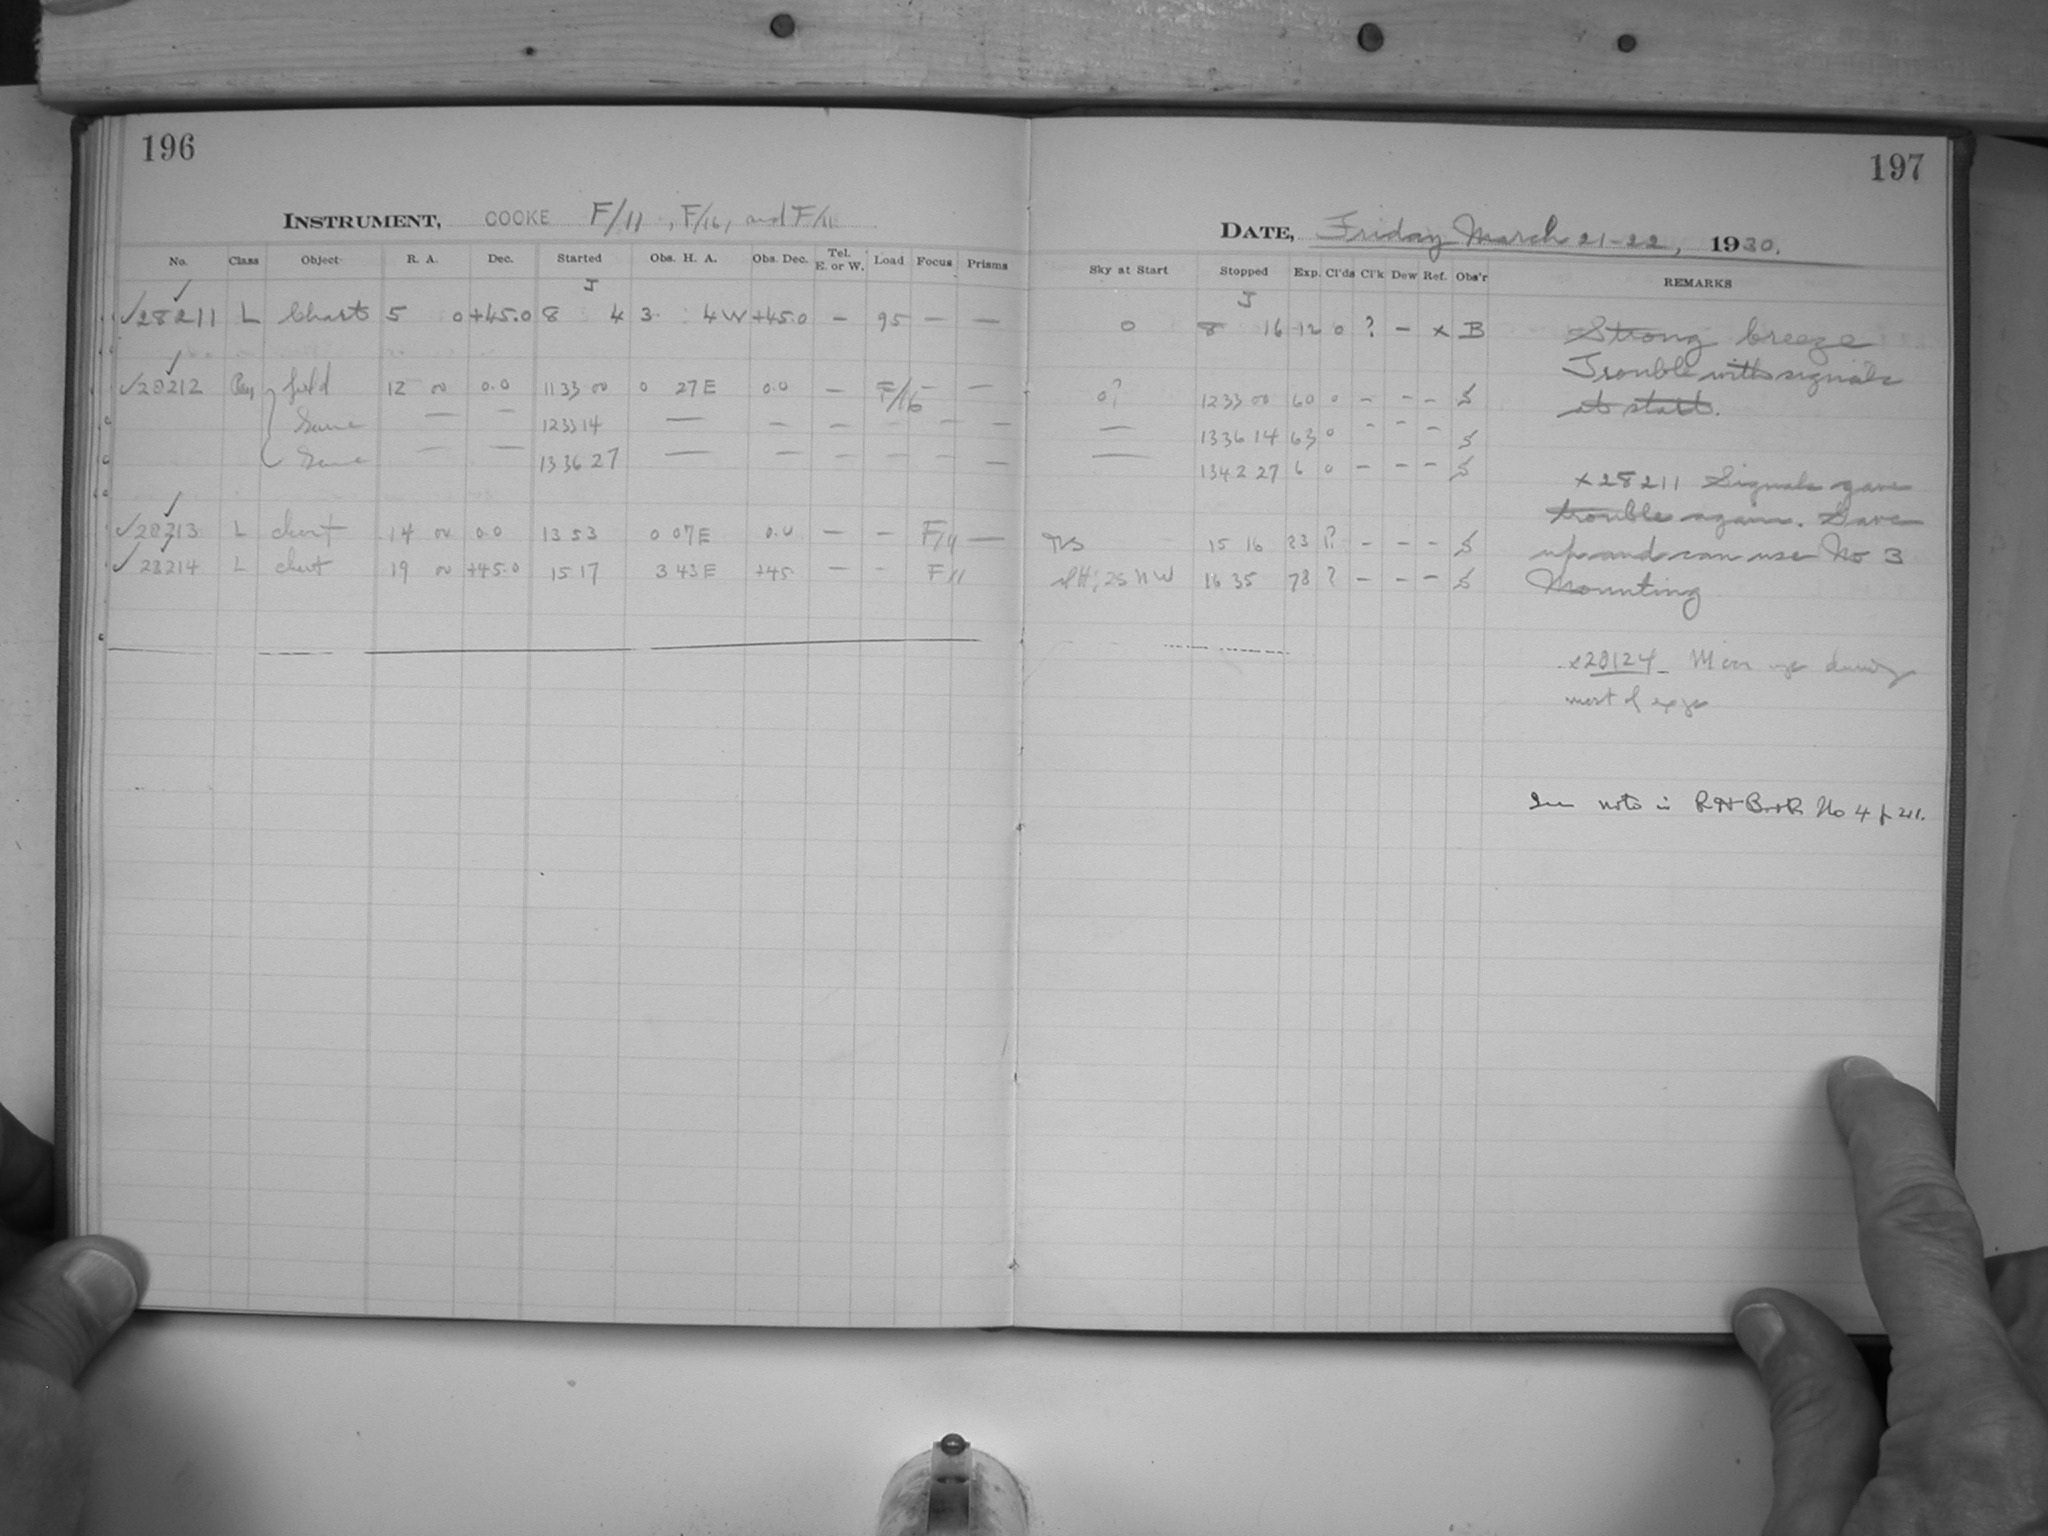 196
INSTRUMENT, COOKE F/11, F/16, and F/11
No. Class Object R. A. Dec. Started Obs. H. A. Obs. Dec. Tel. E. or W. Load Focus Prisms
J
✓28211 L Chart 5 0 +45.0 8 4 3 4W +45.0 — 95 — —
✓28212 field 12 00 0.0 11 33 00 0 27E 0.0 — F/16 — —
Same — — 12 33 14 — — — — — —
Same — — 13 36 27 — — — — — —
✓28213 L chart 14 00 0.0 13 53 0 07E 0.0 — — F/11 —
✓28214 L chart 19 00 +45.0 15 17 3 43E +45 — — F 11
197
DATE, Friday March 21-22, 1930.
Sky at Start Stopped Exp. Cl'ds Cl'k Dew Ref. Obs'r REMARKS
J
0 8 16 12 0 ? — x B
0? 12 33 00 60 0 — — — S
— 13 36 14 63 0 — — — S
— 13 42 27 6 0 — — — S
15 16 83 ? — — — S
25 NW 16 35 78 ? — — — S
Strong breeze
Trouble with signals
at start.
x28211 Signals gave
trouble again. Gave
up and can use No 3
Mounting
x28124 Moon up during
most of expo
See note in R H Book No 4 p 211.